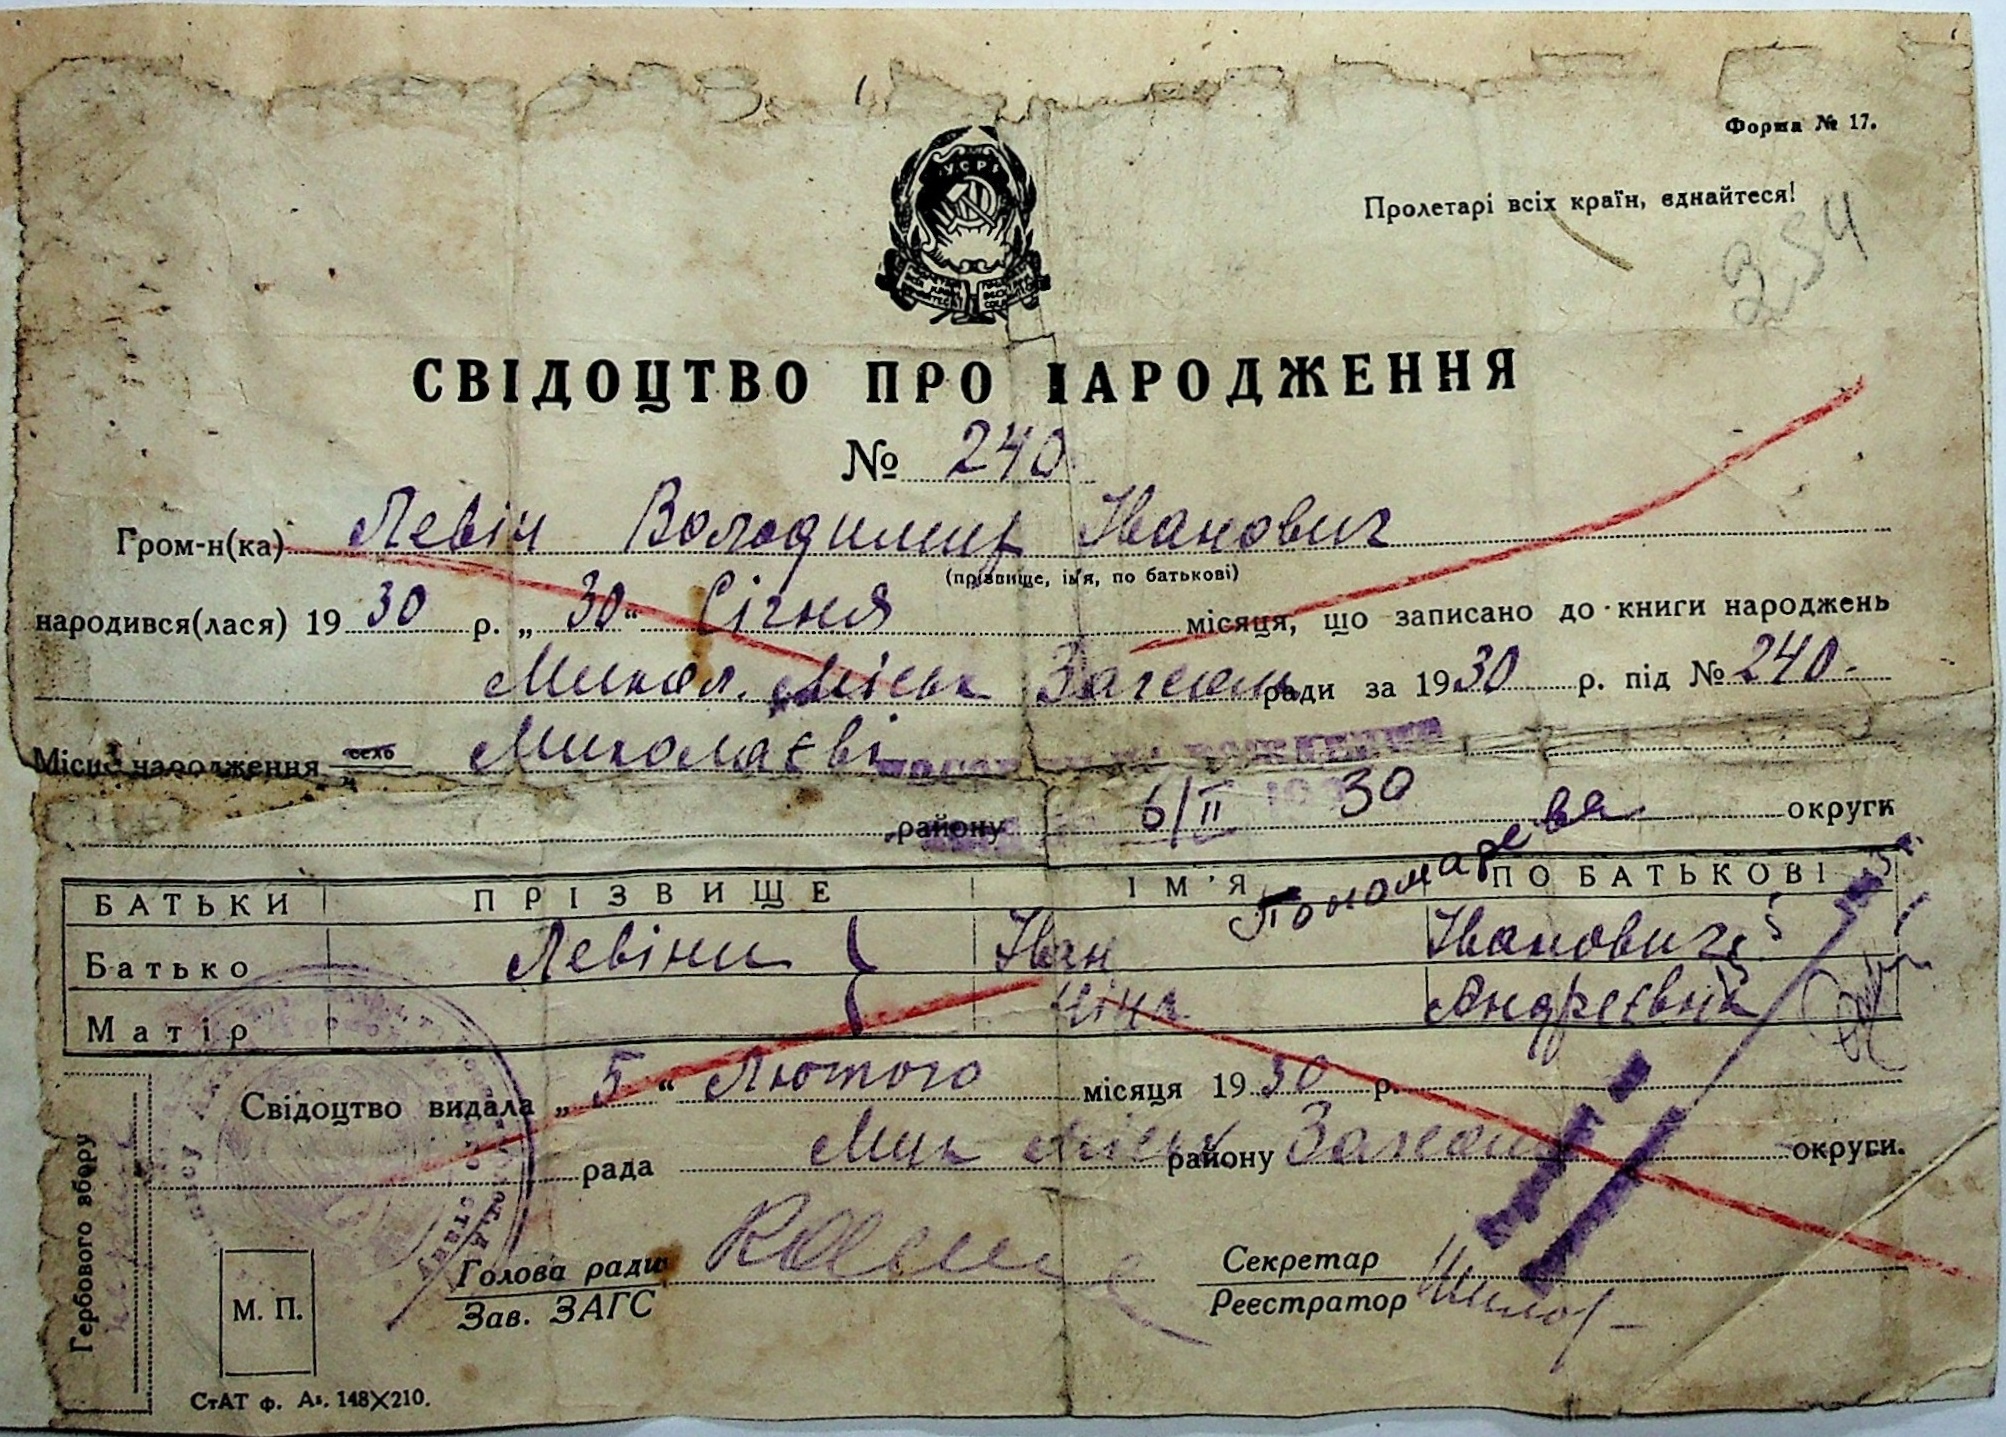 Форма № 17.
Пролетарі всіх країн, єднайтеся!
254
УСРР
СВІДОЦТВО ПРО НАРОДЖЕННЯ
№ 240
Гром-н(ка) Левін Володимир Іванович
(прізвище, ім'я, по батькові)
народився(лася) 1930 р. „30“ Січня місяця, що записано до книги народжень
Микол. Міськ Загсом ради за 1930 р. під № 240
Місце народження село Миколаєві
району 6/II 30 округи
Пономарева
БАТЬКИ ПРІЗВИЩЕ ІМ'Я ПО БАТЬКОВІ
Батько Левіни Іван Іванович
Матір Ніна Андреєвна
Свідоцтво видала „5“ Лютого місяця 1930 р.
рада Мик Міськ району Загсом округи.
Голова ради
Зав. ЗАГС
Секретар
Реєстратор
Гербового збору
М. П.
СтАТ ф. А₅. 148×210.